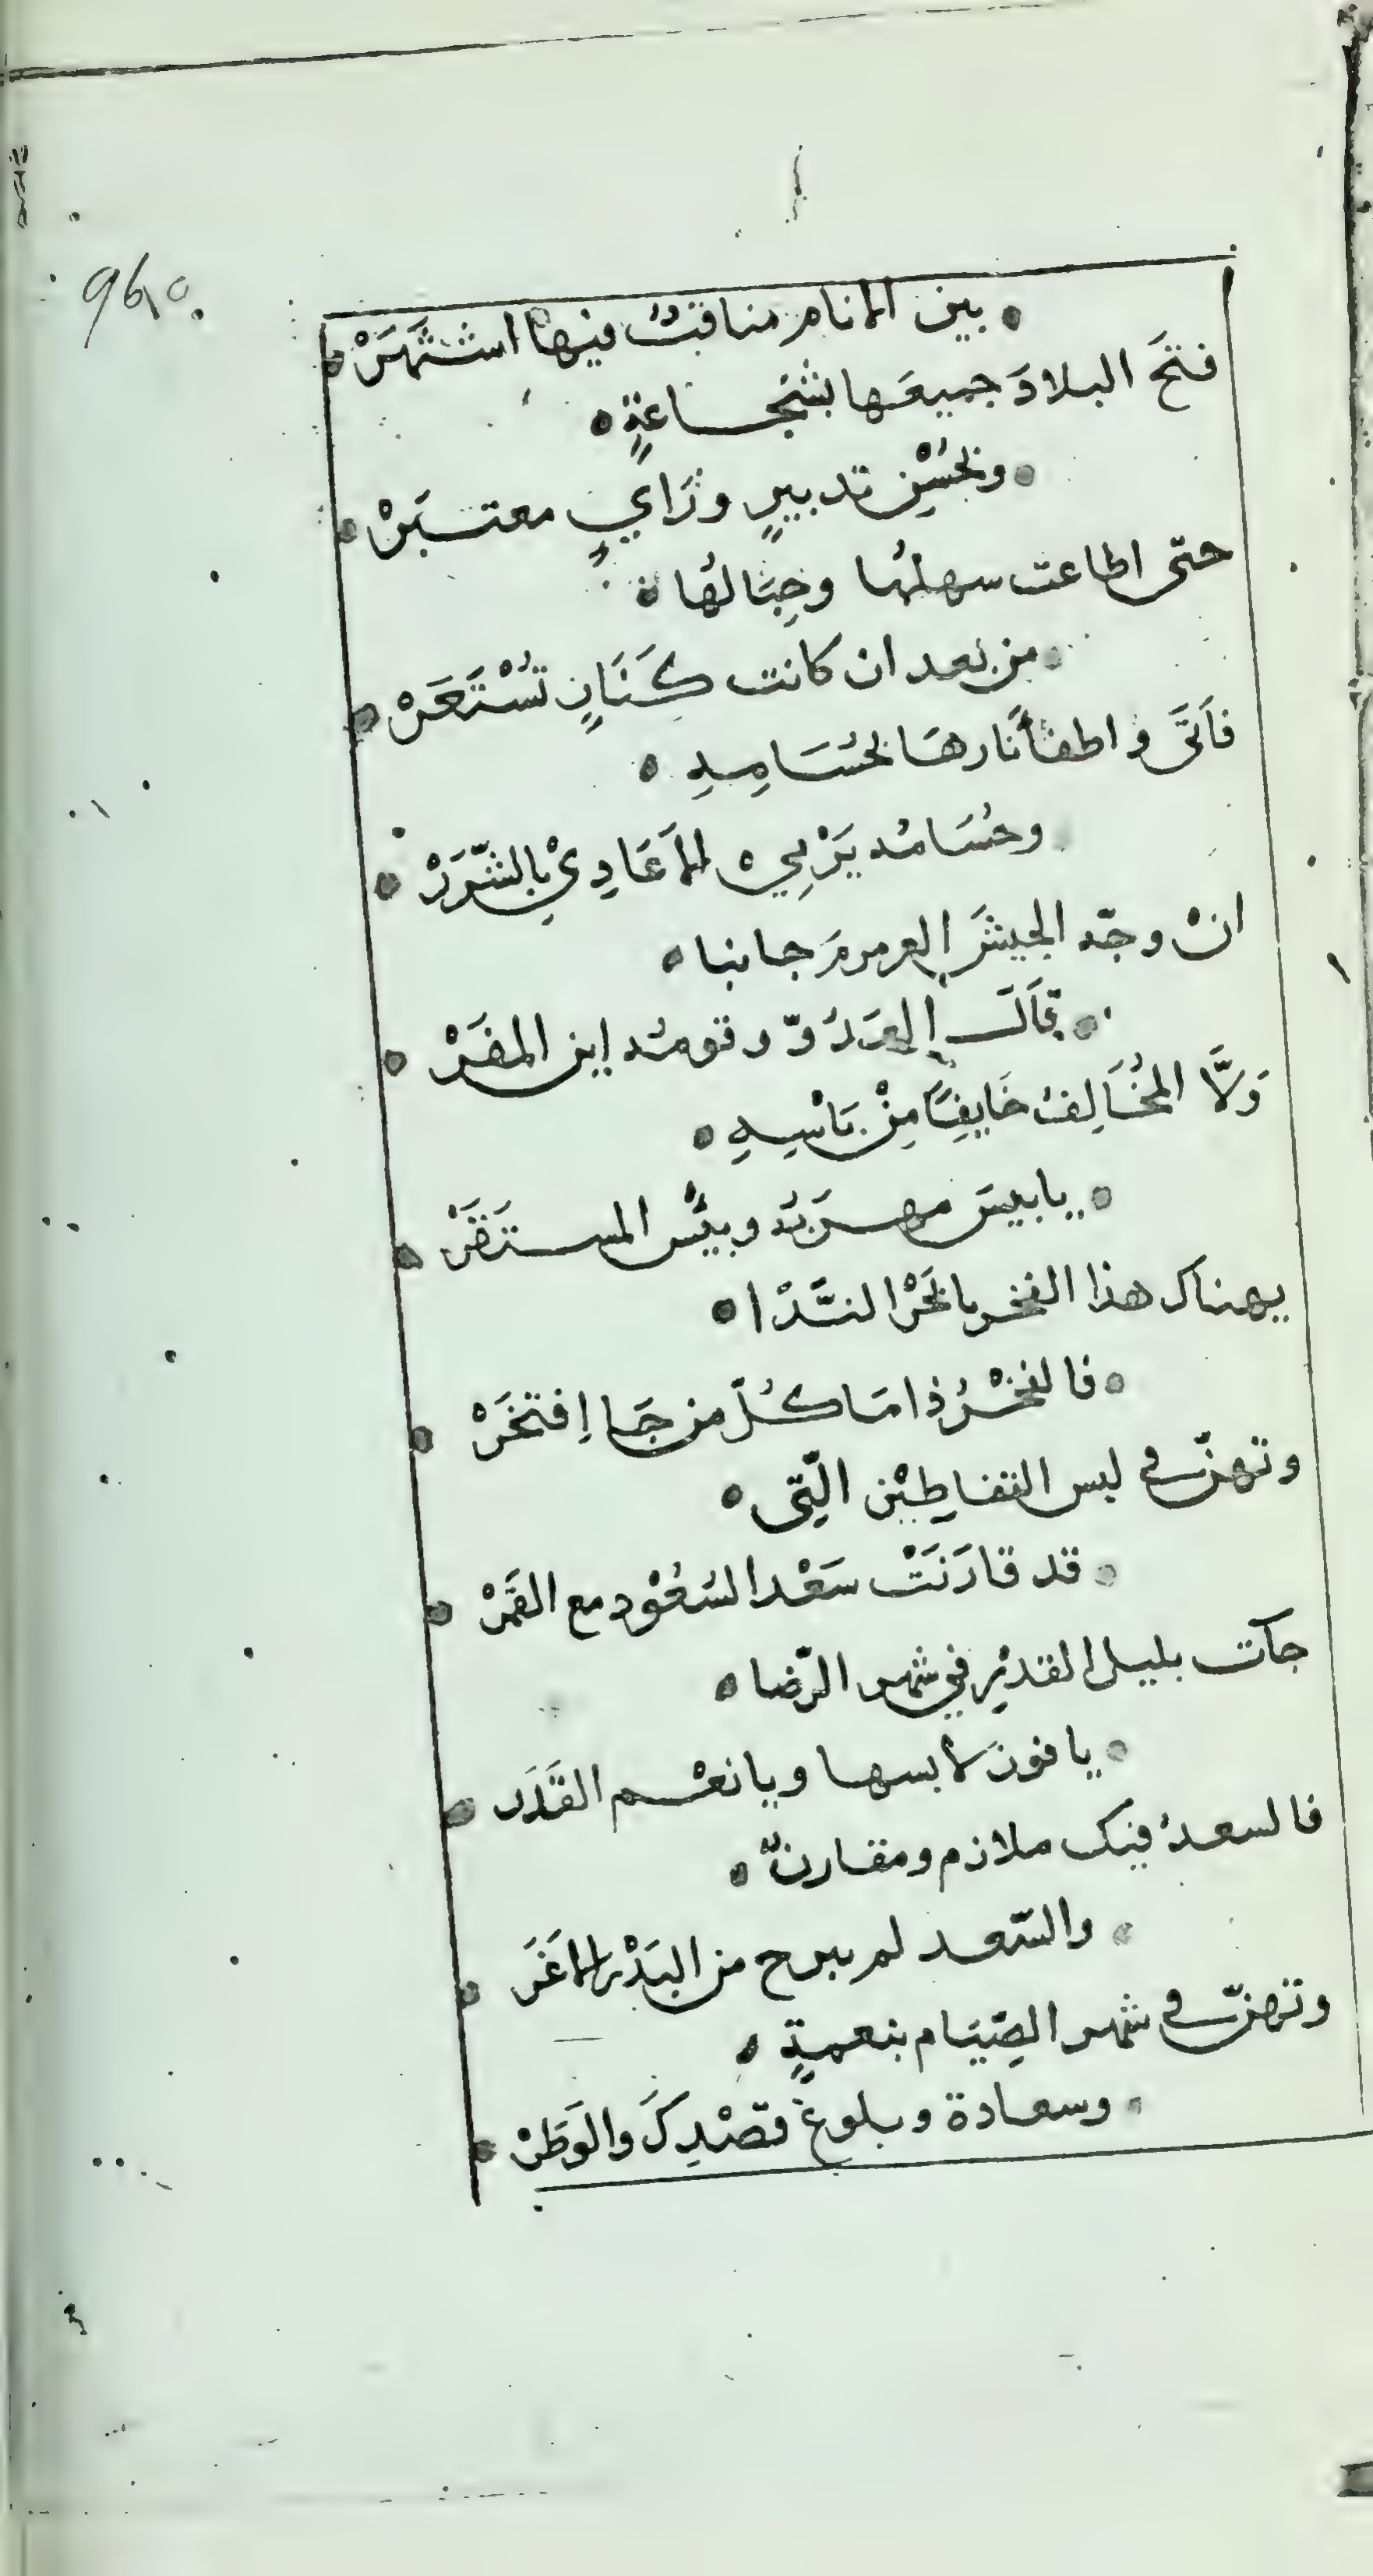 96
بين الانام مناقبٌ فيها اشتَهَرْ
فتحَ البلادَ جميعَها بشجاعةٍ
وبحُسْنِ تدبيرٍ ورَايٍ معتبَرْ
حتى اطاعت سهلُها وجِبَالُها
من بعد ان كانت كَنَارٍ تُسْتَعَرْ
فاَتَى واطفأ نارهَا بحُسَامِهِ
وحُسَامُه يَرْمِي الاَعَادِيْ بالشّرَرْ
انْ وجّه الجيشَ العرمرمَ جانبا
قاَلَ العَدُوّ وقومُه اين المفَرْ
وَلَّا المخُالِفُ خَايفًا مِنْ بَاسِهِ
يا بيسَ مهرَبُه وبيْسُ المستَقَرْ
يهناك هذا الفخر يا بحَرْ النَّدَا
فالفخْرُ ذا مَا كُلّ من جَا اِفتخَرْ
وتهنّ في لبس القفاطِيْن الّتِى
قد قارَنَتْ سَعْد السُعُوْدِ مع القَمَرْ
جآت بليل القدْرِ في شهر الرّضا
يا فوزَ لابسها ويا نعْم القَدَر
فالسعدُ فيك ملازم ومقارنٌ
والسّعد لم يبرح من البَدْر الاَغَر
وتهنّ في شهر الصِّيَام بنعمةٍ
وسعادة وبلوغ قصْدِكَ والوَطَرْ